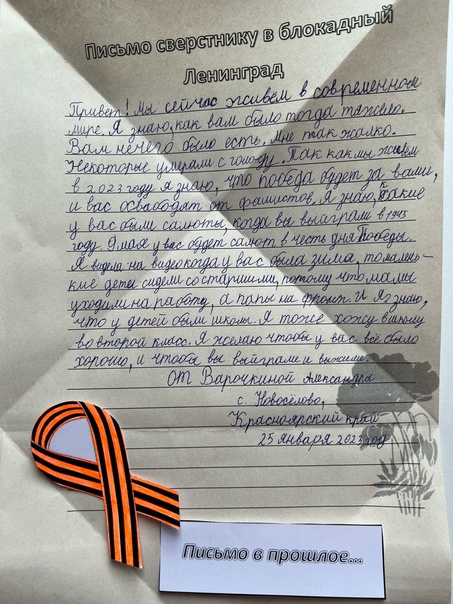 Письмо сверстнику в блокадный
Ленинград
Привет! Мы сейчас живём в современном
мире. Я знаю, как вам было тогда тяжело.
Вам нечего было есть. Мне так жалко.
Некоторые умирали с голоду. Так как мы живём
в 2023 году я знаю, что победа будет за вами,
и вас освободят от фашистов. Я знаю, какие
у вас были салюты, когда вы выиграли в 1945
году. 9 мая у вас будет салют в честь дня Победы.
Я видела на видео когда у вас была зима, то малень-
кие дети сидели со старшими, потому что мамы
уходили на работу, а папы на фронт. И я знаю,
что у детей были школы. Я тоже хожу в школу
во второй класс. Я желаю чтобы у вас всё было
хорошо, и чтобы вы выиграли и выжили.
От Варочкиной Александры
с. Новосёлово,
Красноярский край
25 января 2023 год
Письмо в прошлое...